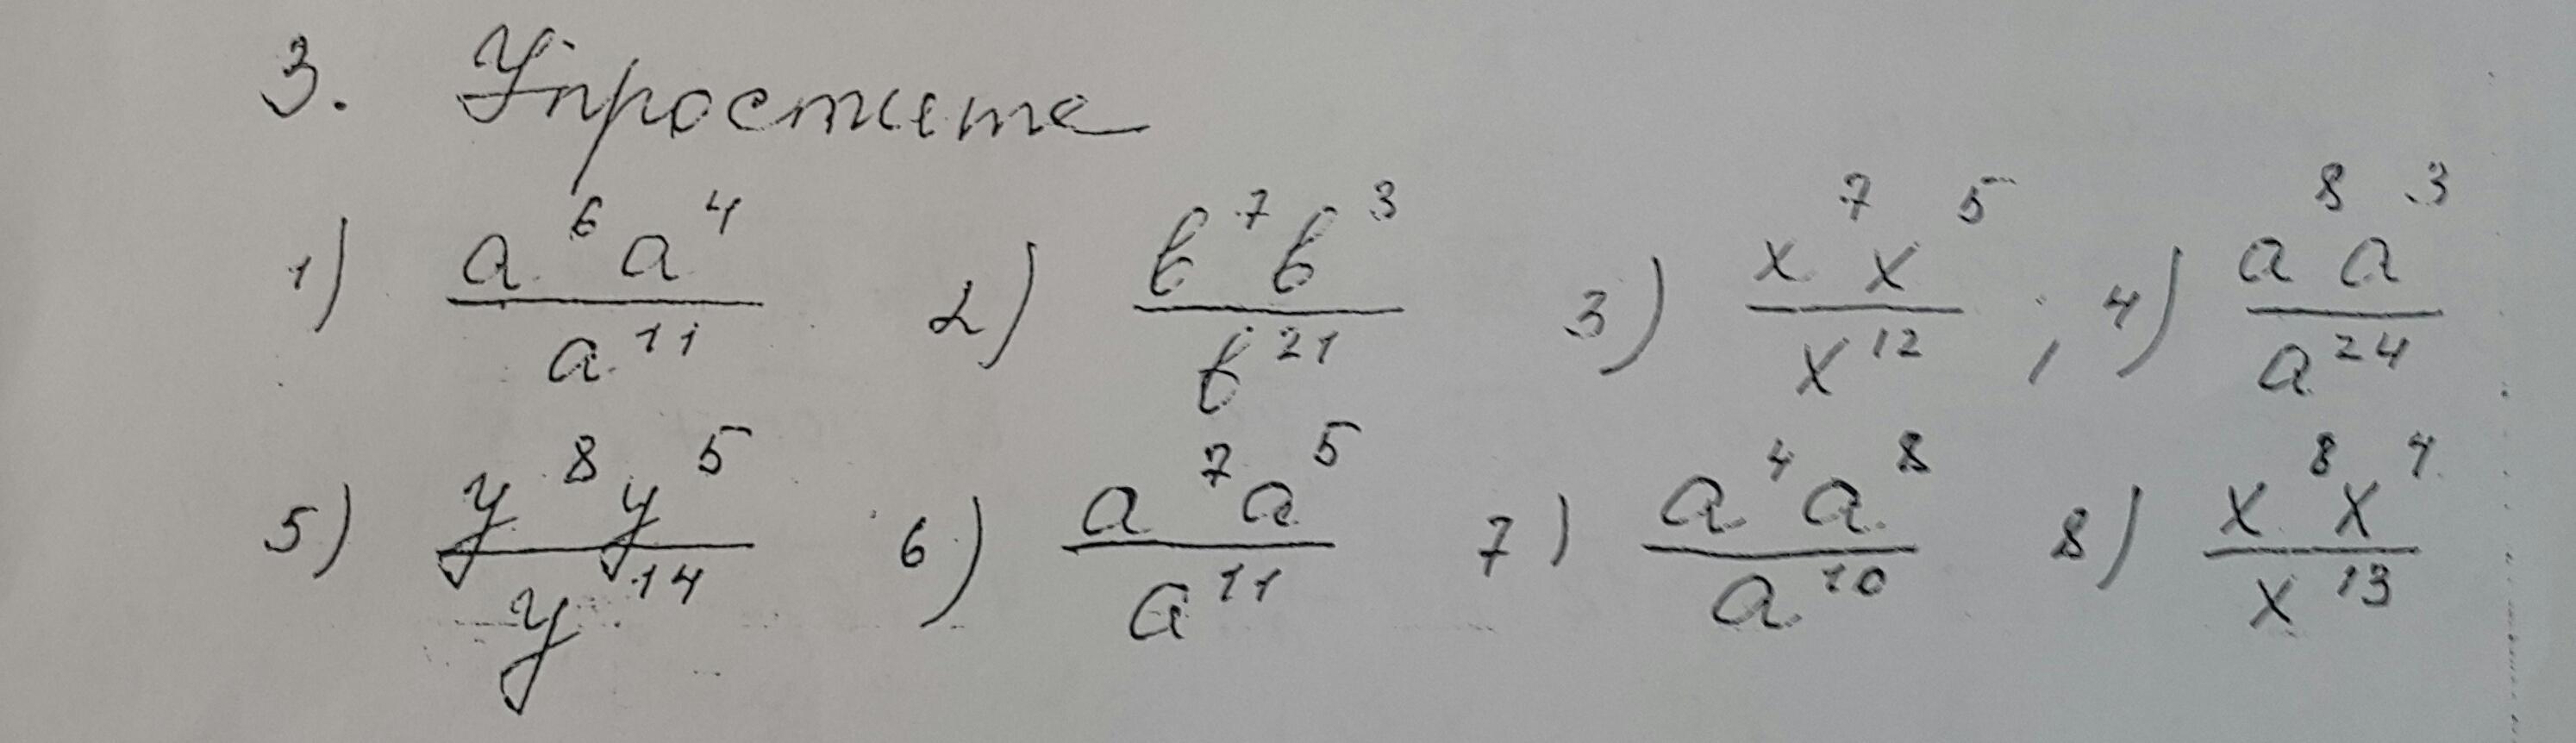 3. Упростите
1) a⁶a⁴/a¹¹ 2) b⁷b³/b²¹ 3) x⁷x⁵/x¹² ; 4) a⁸a³/a²⁴
5) y⁸y⁵/y¹⁴ 6) a⁷a⁵/a¹¹ 7) a⁴a⁸/a¹⁰ 8) x⁸x⁴/x¹³